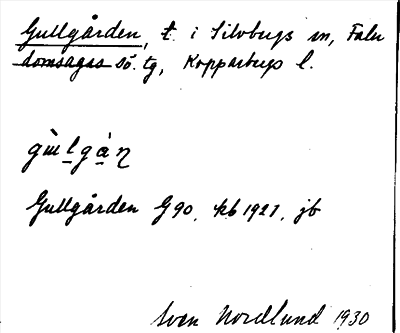 Gullgården, t. i Silvbergs sn, Falu
domsagas sö. tg, Kopparbergs l.
gùlgàɳ
Gullgården G90, kb 1921, jb
Sven Nordlund 1930